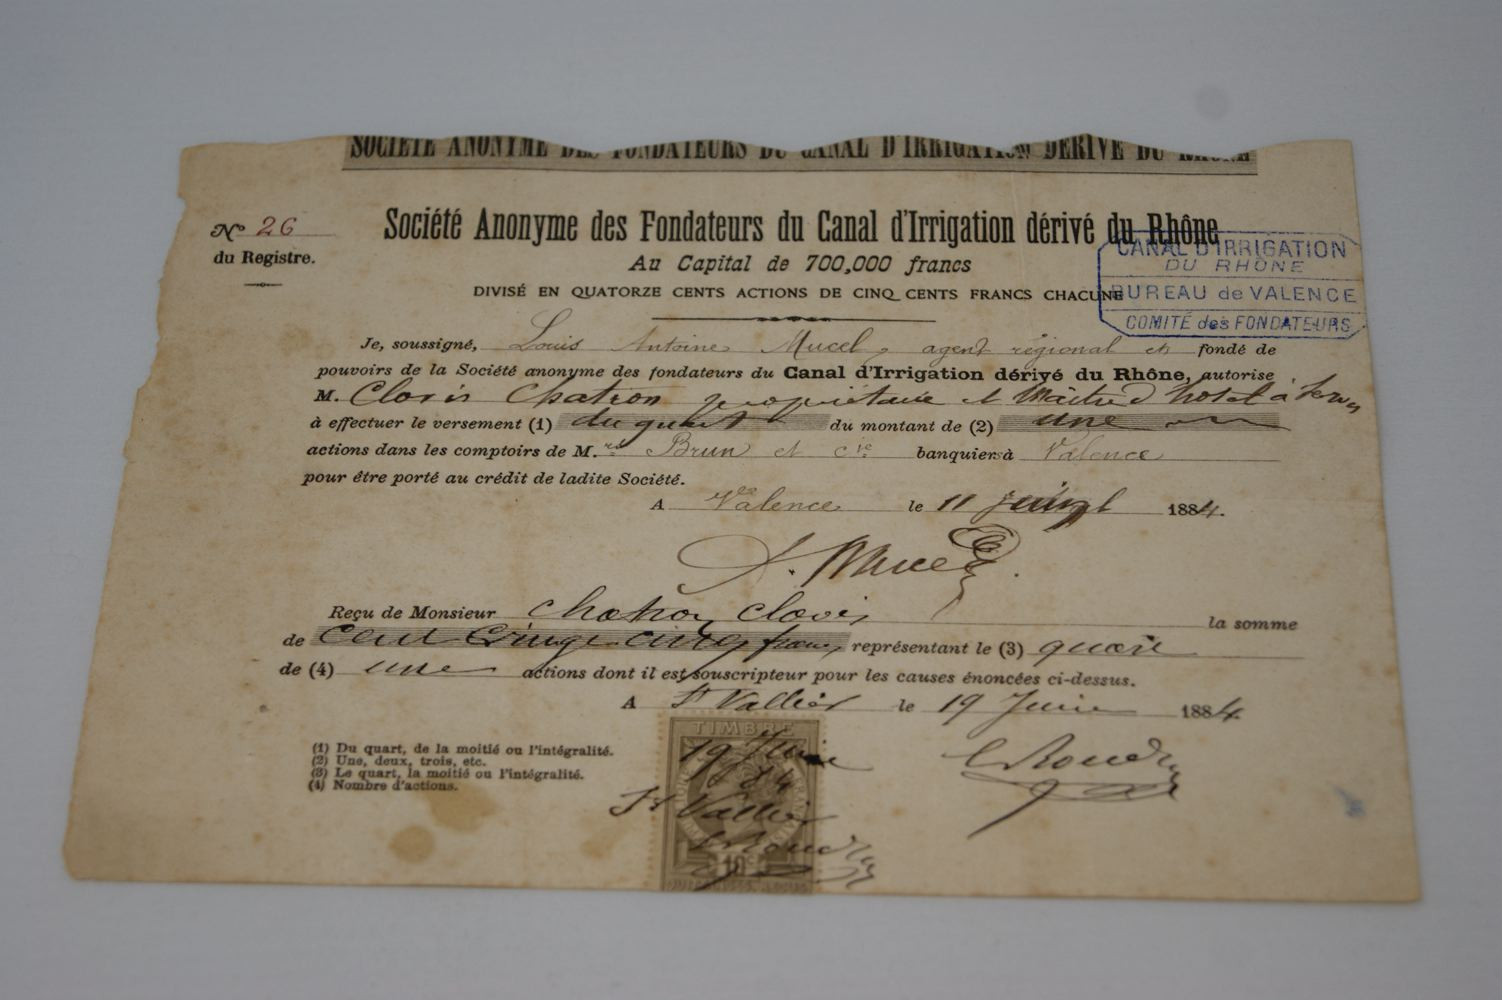 SOCIÉTÉ ANONYME DES FONDATEURS DU CANAL D'IRRIGATION DÉRIVÉ DU RHÔNE
Société Anonyme des Fondateurs du Canal d'Irrigation dérivé du Rhône
Nº 26
du Registre.
Au Capital de 700,000 francs
DIVISÉ EN QUATORZE CENTS ACTIONS DE CINQ CENTS FRANCS CHACUNE
CANAL D'IRRIGATION
DU RHÔNE
BUREAU de VALENCE
COMITÉ des FONDATEURS
Je, soussigné, Louis Antoine Mucel, agent régional et fondé de
pouvoirs de la Société anonyme des fondateurs du Canal d'Irrigation dérivé du Rhône, autorise
M. Clovis Chatron propriétaire et Maître d'hotel à
à effectuer le versement (1) du quart du montant de (2) une
actions dans les comptoirs de M.rs Brun et Cie banquiers à Valence
pour être porté au crédit de ladite Société.
A Valence le 11 1884.
Mucel
Reçu de Monsieur Chatron Clovis la somme
de cent vingt cinq francs représentant le (3) quart
de (4) une actions dont il est souscripteur pour les causes énoncées ci-dessus.
A St Vallier le 19 Juin 1884
(1) Du quart, de la moitié ou l'intégralité.
(2) Une, deux, trois, etc.
(3) Le quart, la moitié ou l'intégralité.
(4) Nombre d'actions.
TIMBRE
19 Juin
84
St Vallier
10c